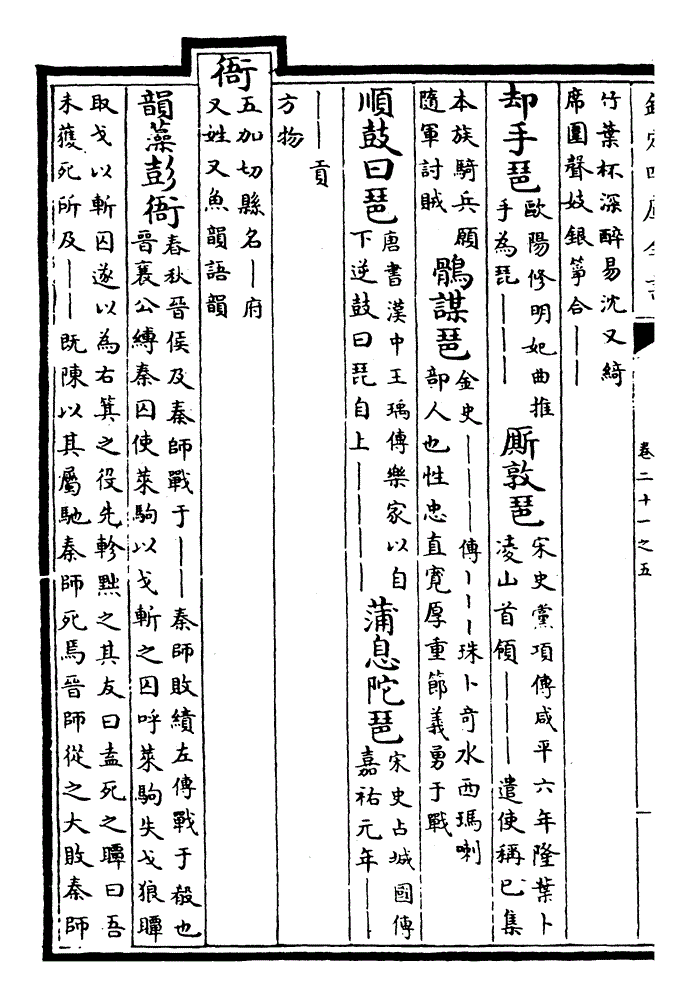 欽定四庫全書
卷二十一之五
一
竹葉杯深醉易沈又綺
席圍聲妓銀箏合丨丨
却手琶
歐陽修明妃曲推
手為琵丨丨丨丨
厮敦琶
宋史黨項傳咸平六年隆葉卜
凌山首領丨丨丨遣使稱已集
本族騎兵願
隨軍討賊
鶻謀琶
金史丨丨丨傳丨丨丨珠卜竒水西瑪喇
部人也性忠直寛厚重節義勇于戰
順鼓曰琶
唐書漢中王瑀傳樂家以自
下逆鼓曰琵自上丨丨丨丨
蒲息陀琶
宋史占城國傳
嘉祐元年丨丨
丨丨貢
方物
衙
五加切縣名丨府
又姓又魚韻語韻
韻藻彭衙
春秋晉侯及秦師戰于丨丨秦師敗績左傳戰于殽也
晉襄公縛秦囚使萊駒以戈斬之囚呼萊駒失戈狼瞫
取戈以斬囚遂以為右箕之役先軫黜之其友曰盍死之瞫曰吾
未獲死所及丨丨既陳以其屬馳秦師死焉晉師從之大敗秦師